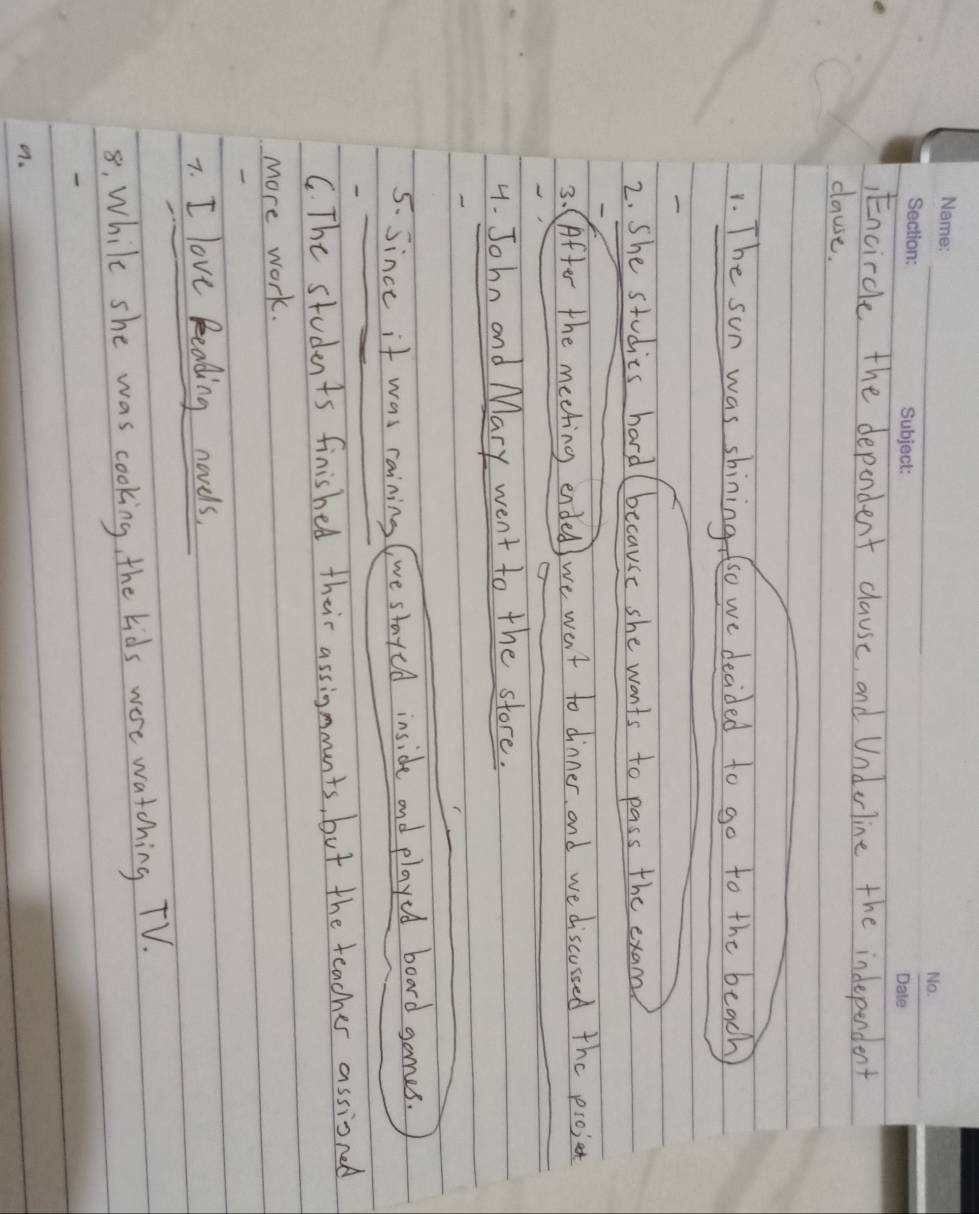 Name:
No.
Section: Subject: Date
Encircle the dependent clause, and Underline the independent
clause.
1. The sun was shining, so we decided to go to the beach
-
2. She studies hard because she wants to pass the exam
-
3. After the meeting ended we went to dinner, and we discussed the projet
-
4. John and Mary went to the store.
-
5. Since it was raining, we stayed inside and played board games.
-
6. The students finished their assignments, but the teacher assigned
more work.
-
7. I love Reading novels.
-
8. While she was cooking, the kids were watching TV.
-
9.